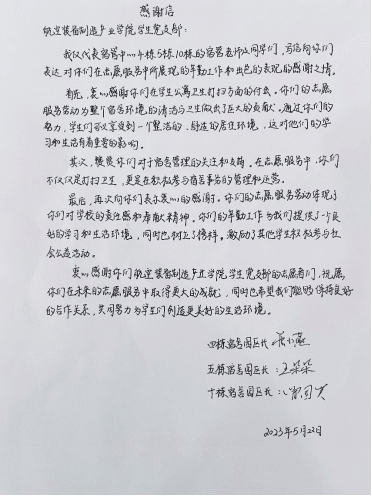 感谢信
航空装备制造产业学院学生党支部：
我仅代表宿管中心4栋5栋10栋的宿管老师及同学们，写信向你们
表达对你们在志愿服务中所展现的辛勤工作和出色的表现的感谢之情。
首先，衷心感谢你们在学生公寓卫生打扫方面的付出。你们的志愿
服务劳动为整个宿舍环境的清洁与卫生做出了巨大的贡献。通过你们的
努力，学生们可以享受到一个整洁的、舒适的居住环境，这对他们的学
习和生活有着重要的影响。
其次，感谢你们对于宿舍管理的关注和支持。在志愿服务中，你们
不仅仅是打扫卫生，更是在积极参与宿舍事务的管理和运营。
最后，再次向你们表示衷心的感谢。你们的志愿服务劳动体现了
你们对学校的责任感和奉献精神。你们的辛勤工作为我们提供了一个良
好的学习和生活环境，同时也树立了榜样。激励了其他学生积极参与社
会公益活动。
衷心感谢你们航空装备制造产业学院学生党支部的志愿者们，祝愿
你们在未来的志愿服务中取得更大的成就，同时也希望我们能够保持良好
的合作关系，共同努力为学生们创造更美好的生活环境。
四栋宿舍园区长：
五栋宿舍园区长：王朵朵
十栋宿舍园区长：
2023年5月22日